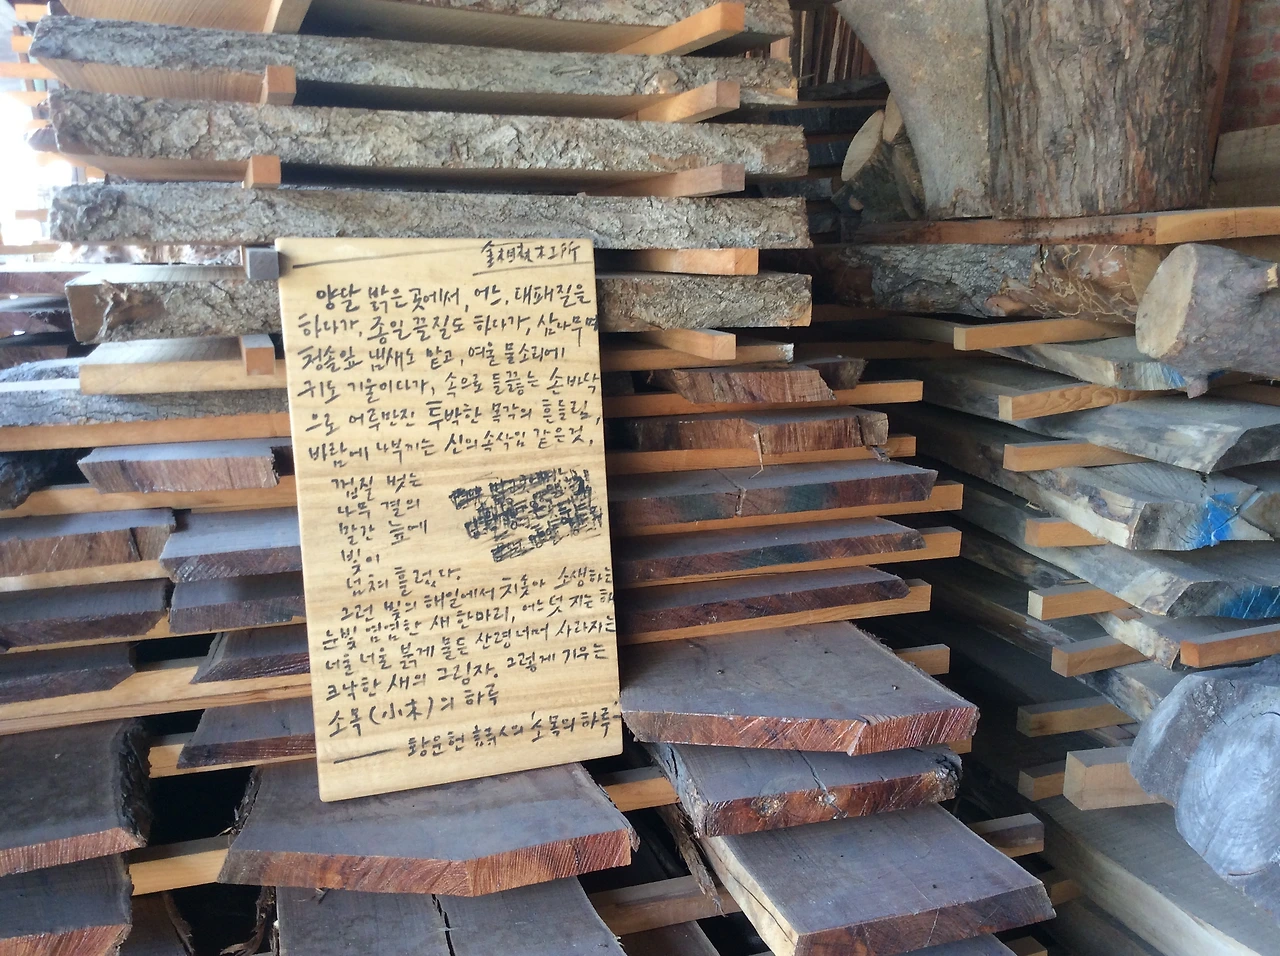 양달 밝은 곳에서, 어느, 대패질을
하다가, 종일 끌질도 하다가, 삼나무며
청솔잎 냄새도 맡고, 여울 물소리에
귀도 기울이다가, 속으로 들끓는 손바닥
으로 어루만진 투박한 목각의 흔들림,
바람에 나부끼는 신의 속삭임 같은 것,
껍질 벗는
나무 결의
빨간 늪에
빛이
넘쳐 흘렀다.
그런 빛의 해일에서 지쳐 소생하는
눈빛 영염한 새 한마리, 어느덧 지는 하
너울너울 붉게 물든 산령 너머 사라지는
크낙한 새의 그림자. 그렇게 기우는
소목(小木)의 하루
황운헌 의 '소목의 하루'